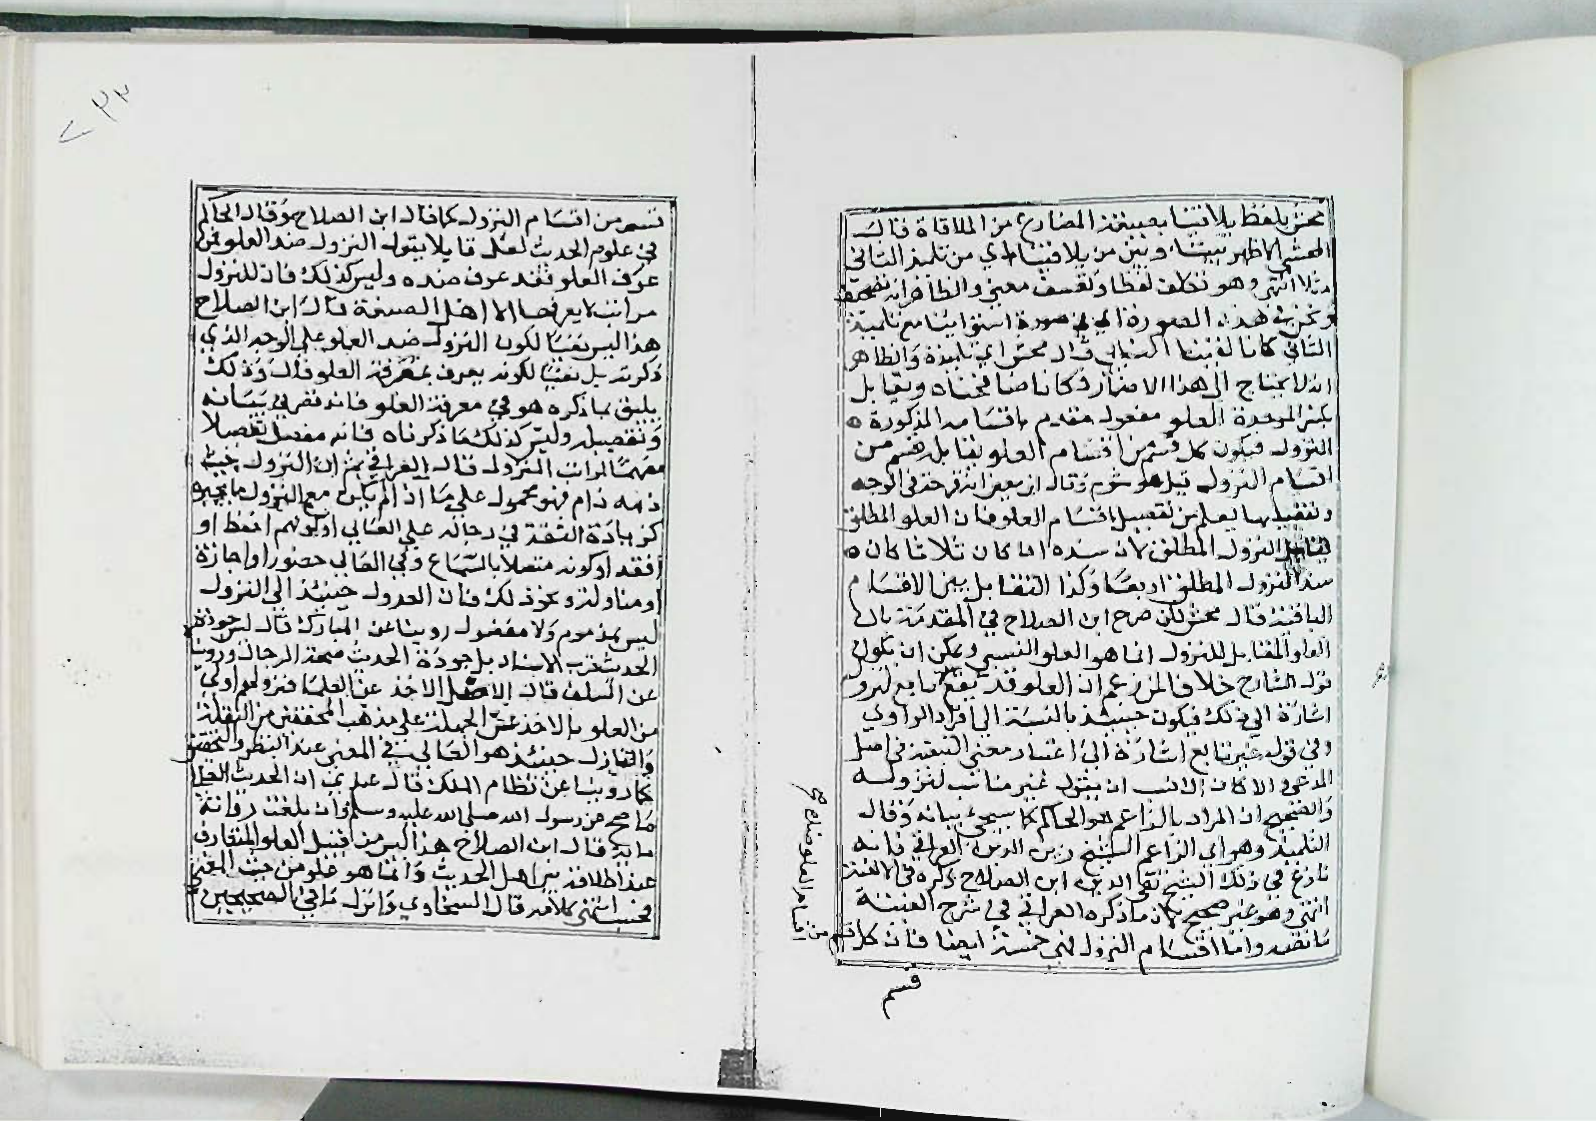 محش بلفظ يلاقينا بصيغة المضارع من الملاقاة قال
المحشي الاظهر بيننا وبين من يلاقينا اي من تلميذ الثاني
مثلا انتهى وهو تكلف لفظا وتعسف معنى والظاهر انه تصحيف
ونحن في هذه الصورة اي في صورة استوائنا مع تلميذ
الثاني كانا لقينا النسائي قال محش اي تلميذه والظاهر
انه لا يحتاج الى هذا الاضمار فكانا صافحناه ويقابل
بكسر الموحدة العلو مفعول مقدم باقسامه المذكورة
النزول فيكون كل قسم من اقسام العلو يقابله قسم من
اقسام النزول قيل هو شوم وقال ابن معين انه قرحة في الوجه
وتفصيلها يعلم من تفصيل اقسام العلو فان العلو المطلق
يقابل النزول المطلق لان سنده اذا كان ثلاثا كان
سند النزول المطلق اربعا وكذا التقابل بين الاقسام
الباقية قال محش لكن صرح ابن الصلاح في المقدمة بان
العلو المقابل للنزول انما هو العلو النسبي ويمكن ان يكون
قول الشارح خلافا لمن زعم ان العلو قد يقع تابع لنزول
اشارة الى ذلك فيكون حينئذ بالنسبة الى افراد الراوي
وفي قوله غير تابع اشارة الى اعتبار معنى التبعية في اصل
المدعى والا كان الانسب ان يقول غير مناسب لنزوله
والصحيح ان المراد بالزاعم هو الحاكم كما سيجيء بيانه وقال
التلميذ وهو اي الزاعم الشيخ زين الدين العراقي فانه
نازع في ذلك الشيخ تقي الدين ابن الصلاح ذكره في الالفية
انتهى وهو غير صحيح لان ما ذكره العراقي في شرح الفيته
ما نصه واما اقسام النزول فهي خمسة ايضا فان كل قسم من
اقسام العلو ضده
قسم
٢٣٣
قسم من اقسام النزول كما قال ابن الصلاح وقال الحاكم
في علوم الحديث لعل قايلا يقول النزول ضد العلو فمن
عرف العلو فقد عرف ضده وليس كذلك فان للنزول
مراتب لا يعرفها الا اهل الصنعة قال ابن الصلاح
هذا ليس نفيا لكون النزول ضد العلو على الوجه الذي
ذكرته بل نفيا لكونه يعرف بمعرفة العلو قال وذلك
يليق بما ذكره هو في معرفة العلو فانه قصر في بيانه
وتفصيله وليس كذلك ما ذكرناه فانه مفصل تفصيلا
مفهما لمراتب النزول قال العراقي ثم ان النزول حيث
ذمه ذام فهو محمول على ما اذا لم يكن مع النزول ما يجبره
كزيادة الثقة في رجاله على العالي او كونهم احفظ او
افقه او كونه متصلا بالسماع وفي العالي حضور او اجازة
او مناولة ونحو ذلك فان العدول حينئذ الى النزول
ليس بمذموم ولا مفضول روينا عن المبارك قال ليس جودة
الحديث قرب الاسناد بل جودة الحديث صحة الرجال وروينا
عن السلف قال الاصل الاخذ عن العلما فنزولهم اولى
من العلو بالاخذ عن الجهلة على مذهب المحققين من النقلة
والنازل حينئذ هو العالي في المعنى عند النظر والتحقيق
كما روينا عن نظام الملك قال عندي ان الحديث العالي
ما صح عن رسول الله صلى الله عليه وسلم وان بلغت رواته
ماية قال ابن الصلاح هذا ليس من قبيل العلو المتعارف
عند اطلاقه بين اهل الحديث وانما هو علو من حيث المعنى
فحسب انتهى كلامه قال السخاوي وانزل ما في الصحيحين